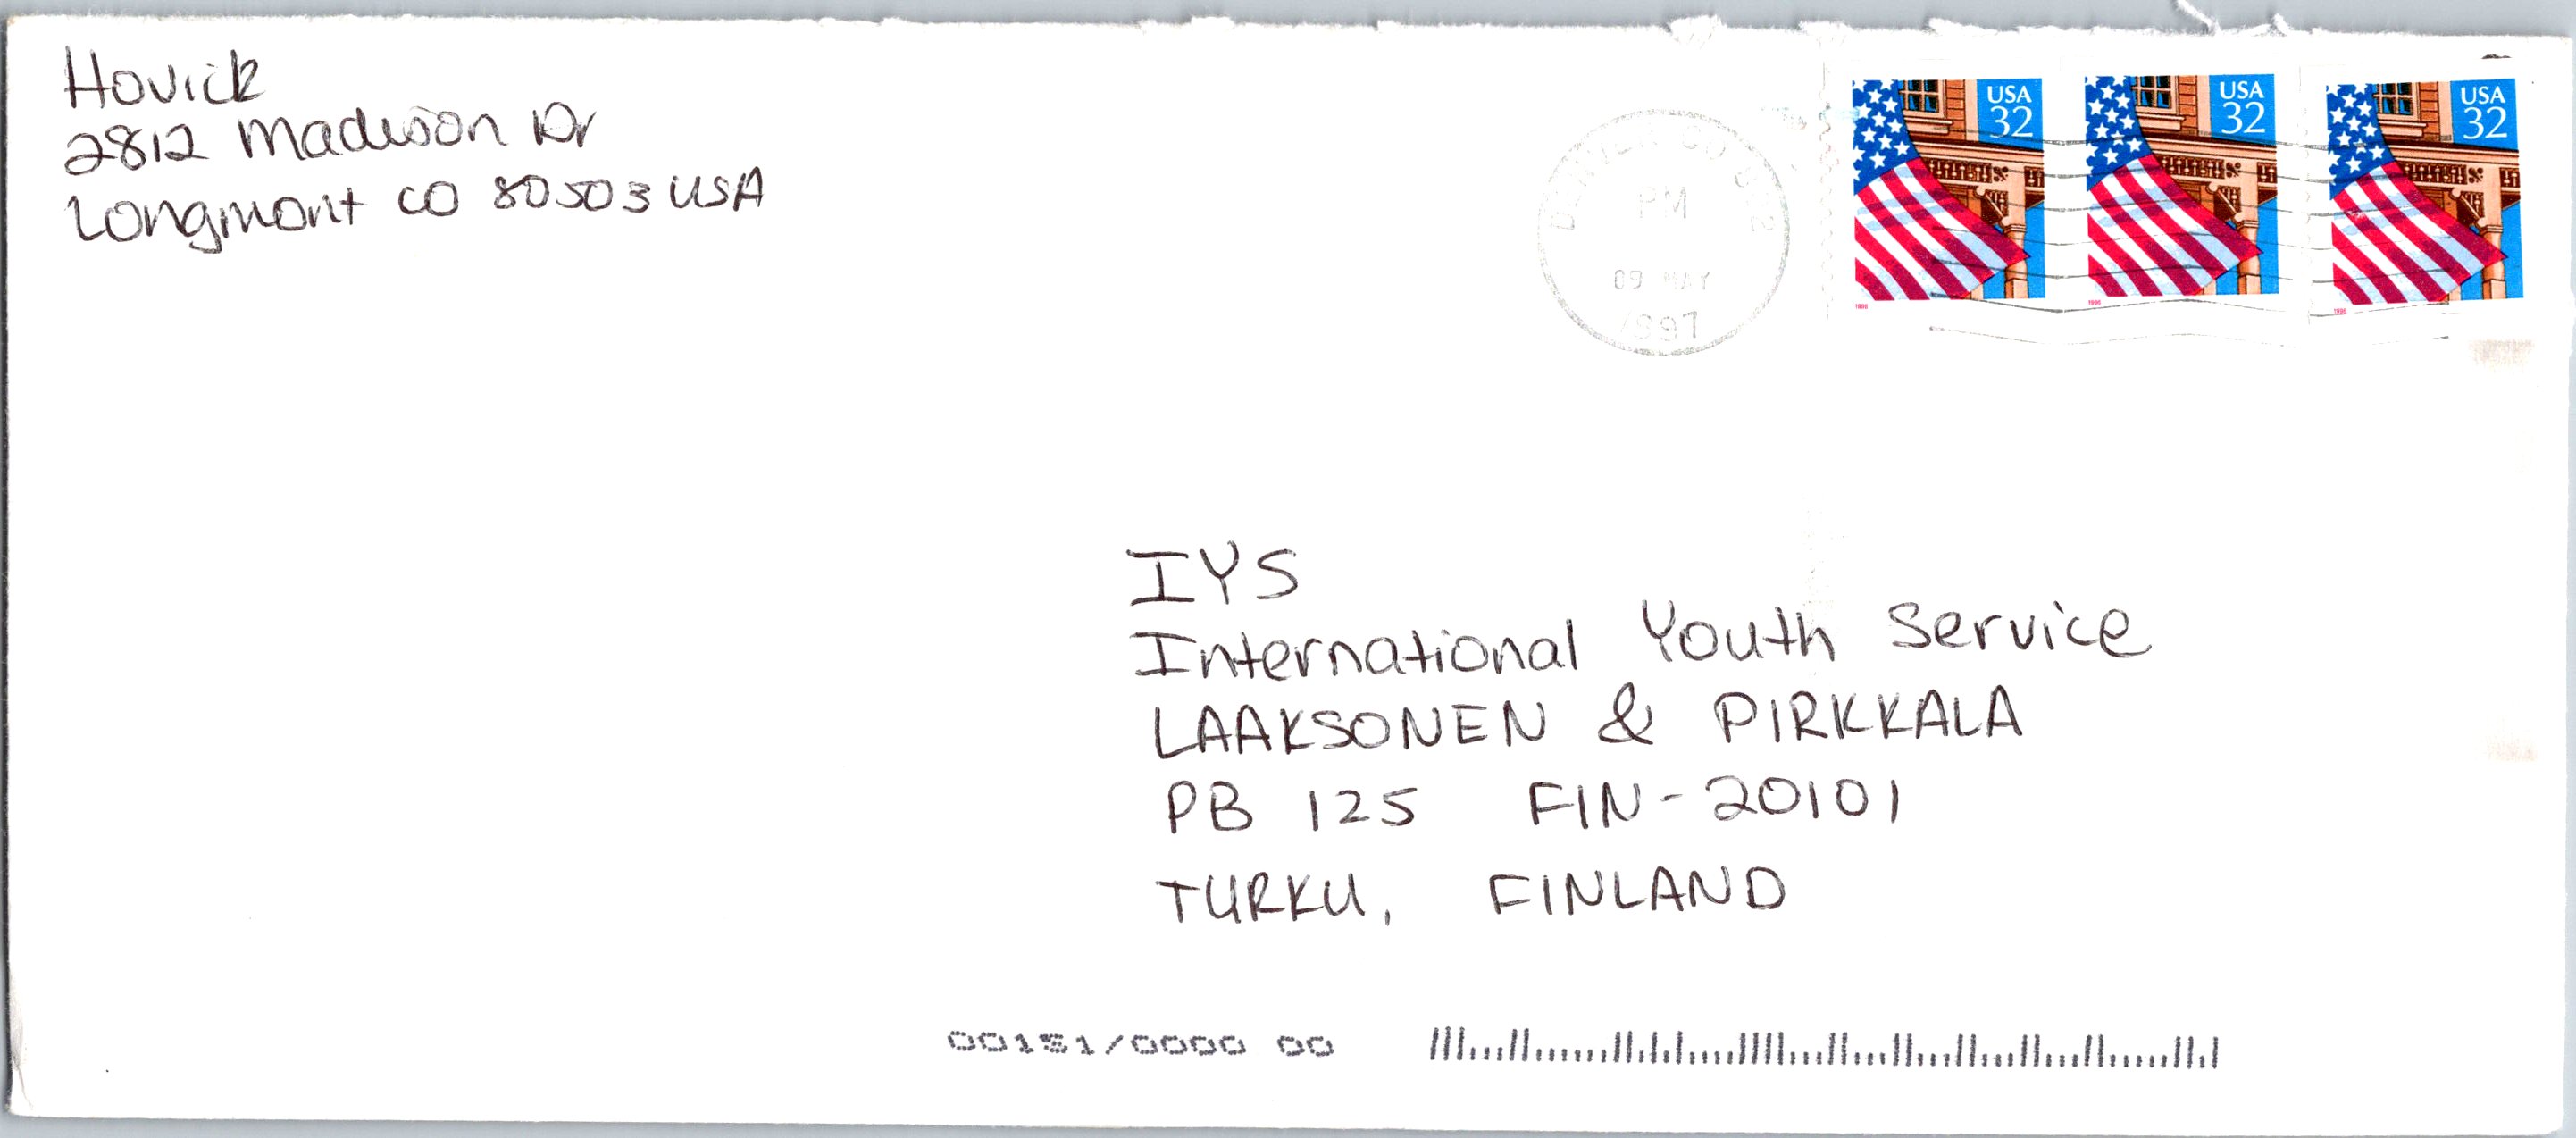 Hovick
2812 Madison Dr
Longmont CO 80503 USA
DENVER CO 802
PM
09 MAY
1997
USA
32
USA
32
USA
32
1996
1996
1996
IYS
International Youth Service
LAAKSONEN & PIRKKALA
PB 125 FIN-20101
TURKU, FINLAND
/0000 00